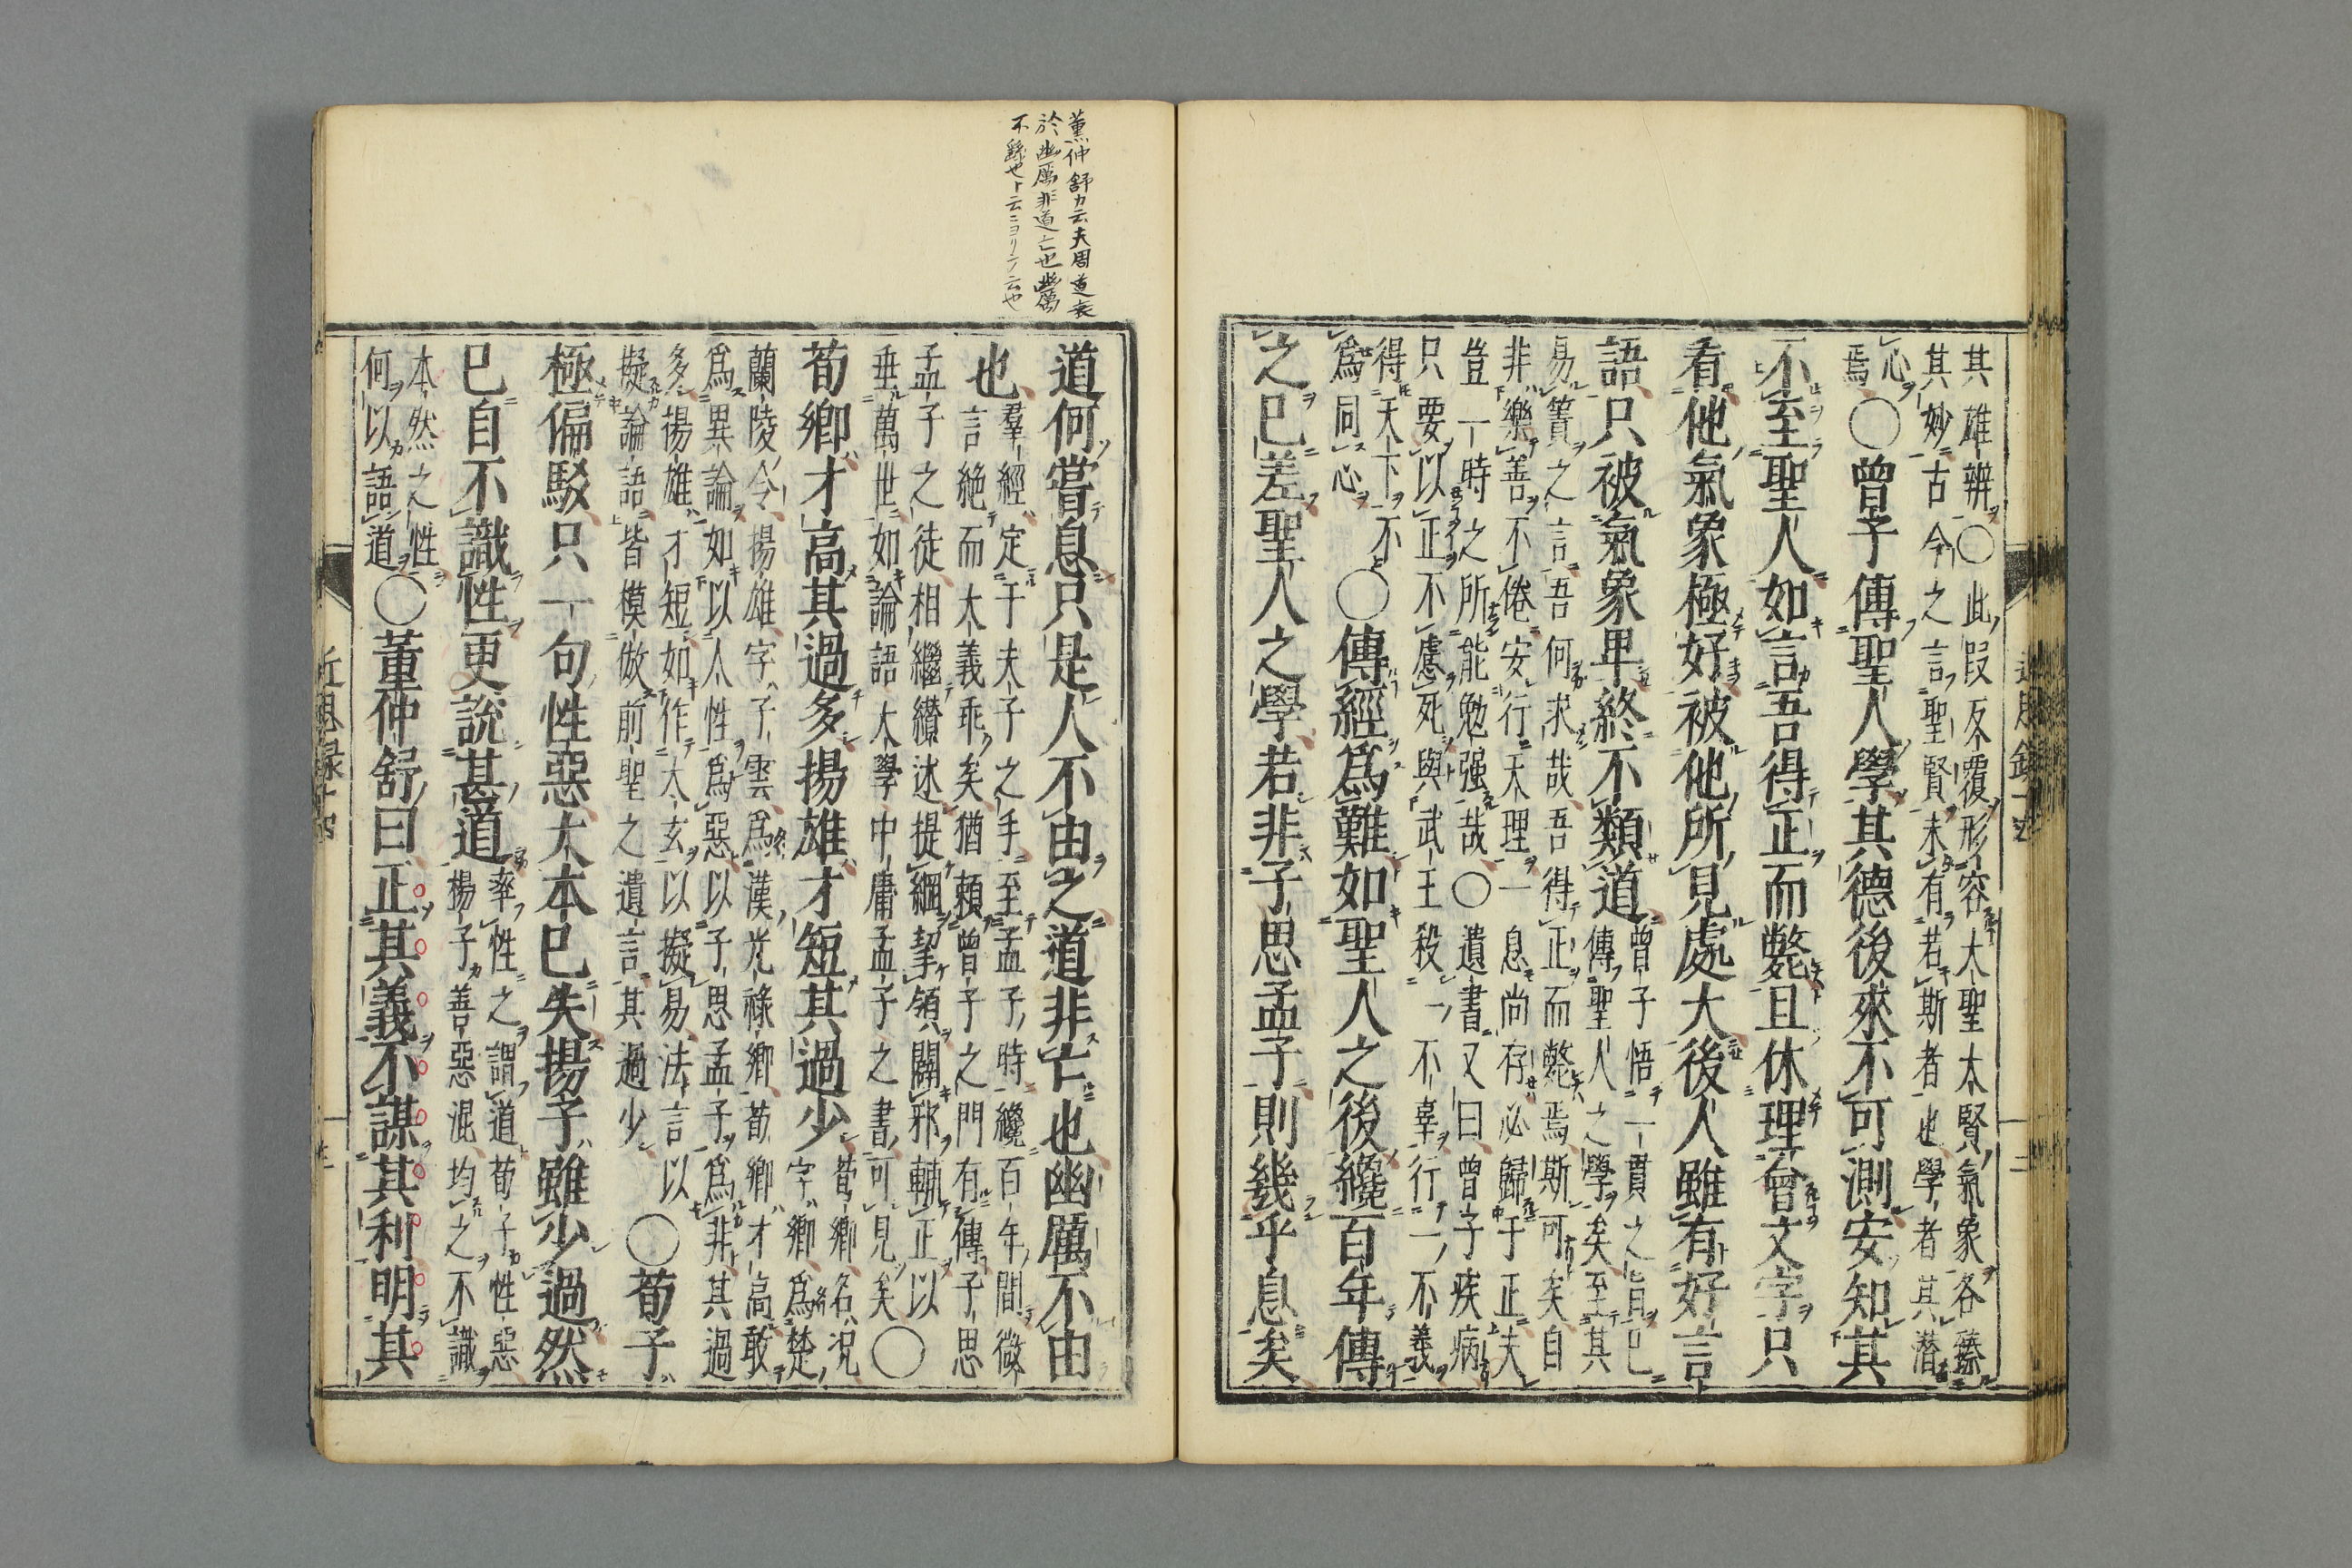 其雄辨〇此段反覆形容大聖大賢氣象各臻
其妙古今之言聖賢未有若斯者也學者其潛
心
焉
〇曾子傳聖人學其德後來不可測安知其
不至聖人如言吾得正而斃且休理會文字只
看他氣象極好被他所見處大後人雖有好言
語只被氣象卑終不類道
曾子悟一貫之旨已
傳聖人之學矣至其
易簀之言吾何求哉吾得正而斃焉斯可矣自
非樂善不倦安行天理一息尚存必歸于正夫
豈一時之所能勉强哉〇遺書又曰曾子疾病
只要以正不慮死與武王殺一不辜行一不義
得天下不
爲同心
〇傳經爲難如聖人之後纔百年傳
之已差聖人之學若非子思孟子則幾乎息矣
道何嘗息只是人不由之道非亡也幽厲不由
也
羣經定于夫子之手至孟子時纔百年間微
言絶而大義乖矣猶頼曾子之門有傳子思
孟子之徒相繼纉述提綱挈領闢邪輔正以
垂萬世如論語大學中庸孟子之書可見矣〇
荀卿才高其過多揚雄才短其過少
荀卿名况
字卿爲楚
蘭陵令揚雄字子雲爲漢光祿卿荀卿才高敢
爲異論如以人性爲惡以子思孟子爲非其過
多揚雄才短如作太玄以擬易法言以
擬論語皆模倣前聖之遺言其過少
〇荀子
極偏駁只一句性惡大本已失揚子雖少過然
已自不識性更說甚道
率性之謂道荀子性惡
揚子善惡混均之不識
本然之性
何以語道
〇董仲舒曰正其義不謀其利明其
董仲舒カ云夫周道衰
於幽厲非道亡也幽厲
不繇也ト云ニヨリテ云也
近思録十四
二